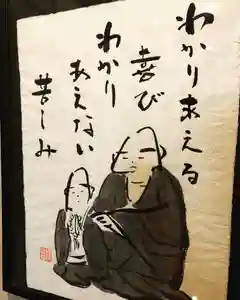 わかり あえる
喜び
わかり
あえない
苦しみ